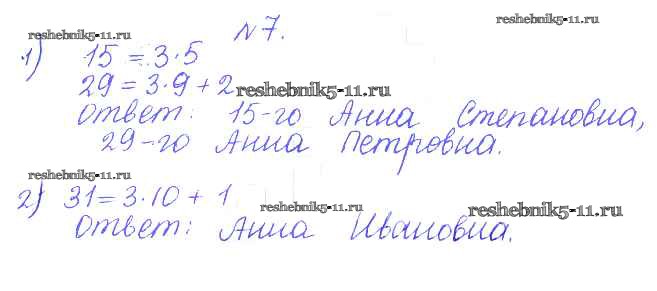 reshebnik5-11.ru
№7.
reshebnik5-11.ru
1) 15 = 3·5
29 = 3·9 + 2
reshebnik5-11.ru
Ответ: 15-го Анна Степановна,
29-го Анна Петровна.
reshebnik5-11.ru
2) 31 = 3·10 + 1
reshebnik5-11.ru
reshebnik5-11.ru
Ответ: Анна Ивановна.